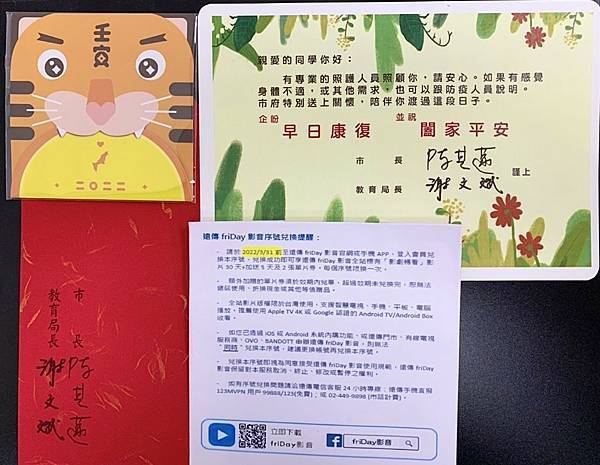 壬寅
二〇二二
親愛的同學你好：
有專業的照護人員照顧你，請安心。如果有感覺
身體不適，或其他需求，也可以跟防疫人員說明。
市府特別送上關懷，陪伴你渡過這段日子。
企盼 並祝
早日康復 闔家平安
市 長 陳其邁
教育局長 謝文斌 謹上
市長 陳其邁
教育局長 謝文斌
遠傳 friDay 影音序號兌換提醒：
- 請於 2022/3/31 前至遠傳 friDay 影音官網或手機 APP，登入會員兌
換本序號，兌換成功即可享遠傳 friDay 影音全站標有「影劇暢看」影
片 30 天+加送 5 天及 2 張單片券。每個序號限換一次。
- 額外加贈的單片券須於效期內兌畢，超過效期未兌換完，恕無法
延延使用、折換現金或其他等值贈品。
- 全站影片版權限於台灣使用，支援智慧電視、手機、平板、電腦
播放。推薦使用 Apple TV 4K 或 Google 認證的 Android TV/Android Box
收看。
- 如您已透過 iOS 或 Android 系統內購功能、或遠傳門市、有線電視
服務商、OVO、BANDOTT 申辦遠傳 friDay 影音，則無法
「同時」兌換本序號，建議更換帳號再兌換本序號。
- 兌換本序號即視為同意接受遠傳 friDay 影音使用規範，遠傳 friDay
影音保留對本服務取消、終止、修改或暫停之權利。
- 如有序號兌換問題請洽遠傳電信客服 24 小時專線：遠傳手機直撥
123MVPN 用戶 99888/123(免費)；或 02-449-9898 (市話計費)。
立即下載
friDay影音
friDay影音